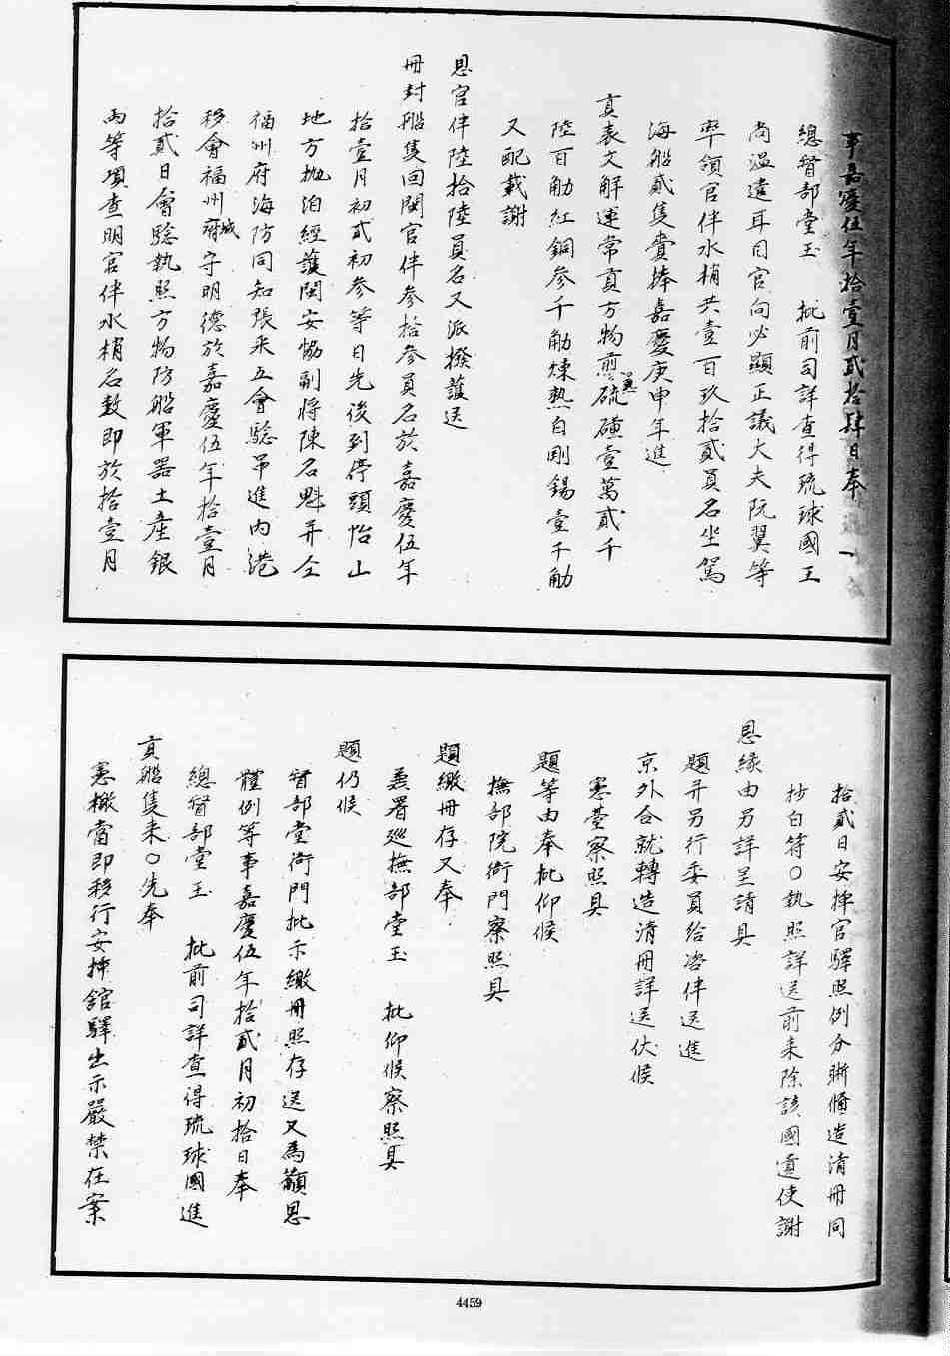 事嘉慶伍年拾壹月貳拾肆日奉
總督部堂玉　批前司詳查得琉球國王
尚溫遣耳目官向必顯正議大夫阮翼等
率領官伴水梢共壹百玖拾貳員名坐駕
海船貳隻賫捧嘉慶庚申年進
貢表文解運常貢方物煎熟硫磺壹萬貳千
陸百觔紅銅參千觔煉熟白剛錫壹千觔
又配載謝
恩官伴陸拾陸員名又派撥護送
冊封船隻回閩官伴參拾參員名於嘉慶伍年
拾壹月初貳初參等日先後到停頭怡山
地方抛泊經護閩安恊副將陳名魁幷仝
福州府海防同知張采五會驗吊進內港
移會福州城守府明德於嘉慶伍年拾壹月
拾貳日會驗執照方物防船軍器土產銀
両等項查明官伴水梢名数即於拾壹月
拾貳日安揷官驛照例分晰備造清冊同
抄白符○執照詳送前来除該國遣使謝
恩緣由另詳呈請具
題幷另行委員給咨伴送進
京外合就轉造清冊詳送伏候
憲臺察照具
題等由奉批仰候
撫部院衙門察照具
題繳冊存又奉
兼署巡撫部堂玉　批仰候察照具
題仍候
督部堂衙門批示繳冊照存送又為籲恩
體例等事嘉慶伍年拾貳月初拾日奉
總督部堂玉　批前司詳查得琉球國進
貢船隻来○先奉
憲檄當即移行安揷館驛出示嚴禁在案
4459